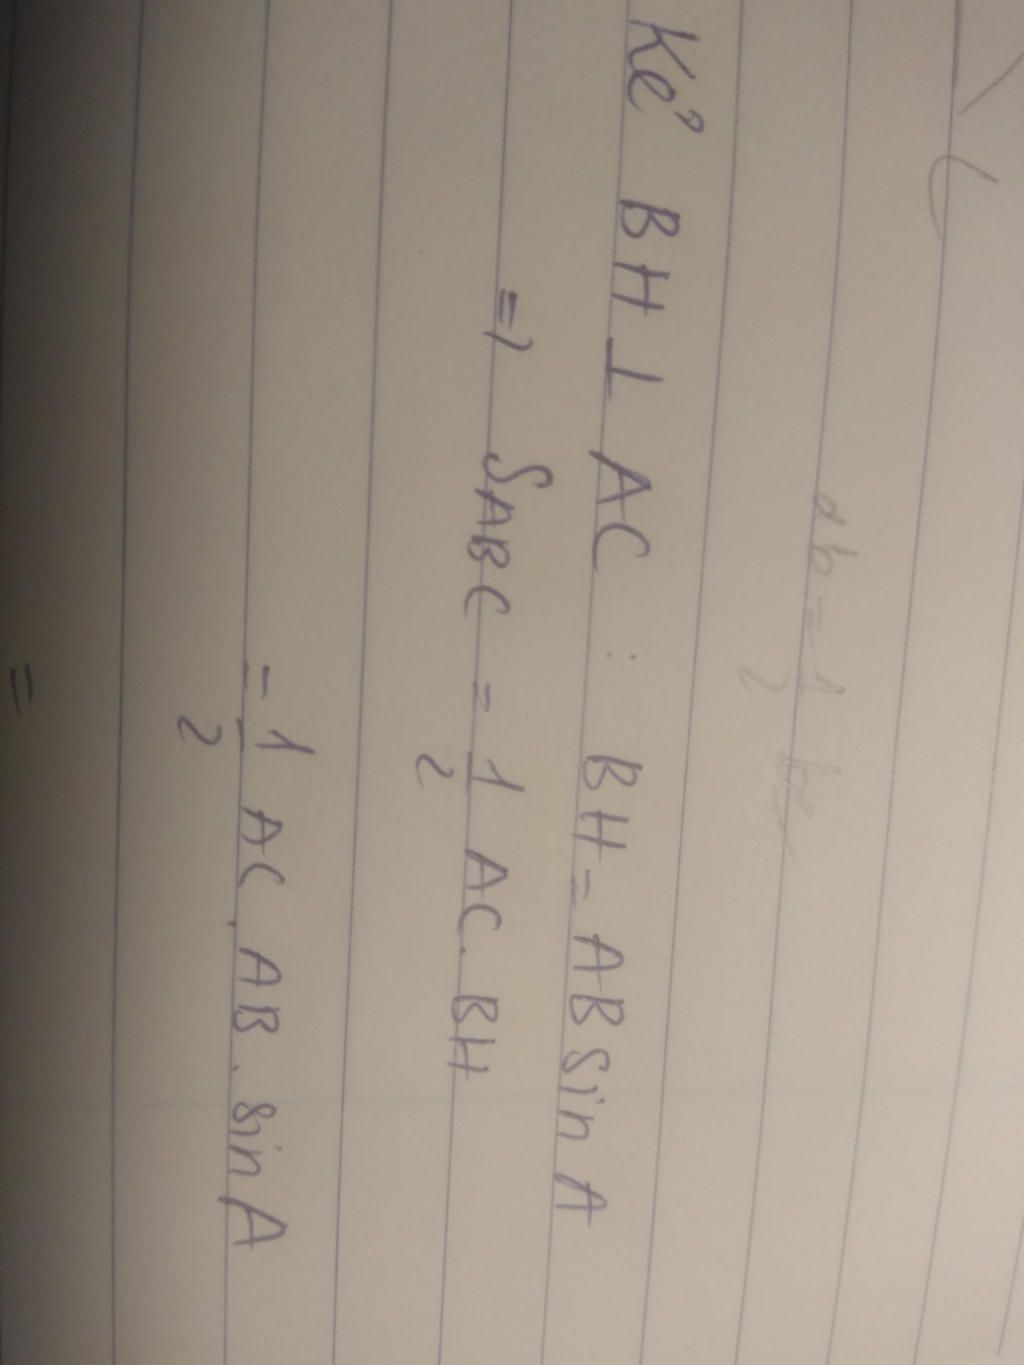 Kẻ BH ⊥ AC : BH = AB sin A
=> SABC = 1/2 AC. BH
= 1/2 AC . AB . sin A
=